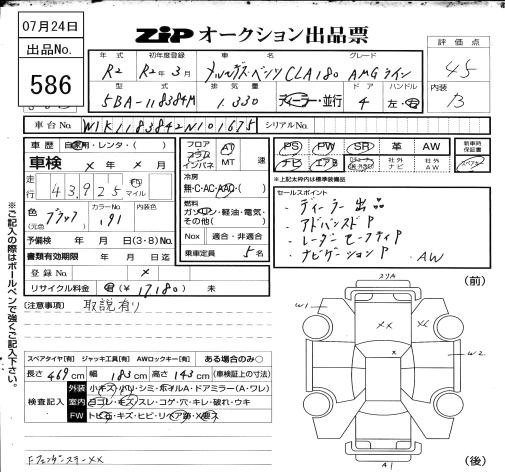 07月24日
ZIP オークション出品票
出品No.
586
年式 初年度登録 車名 グレード
R2 R2年3月 メルセデス・ベンツ CLA180 AMGライン
型式 排気量 ドア ハンドル
5BA-118384M 1.330 ディーラー・並行 4 左・右
評価点
4.5
内装
B
車台No. W1K1183842N101675 シリアルNo.
車歴 自家用・レンタ・( )
車検 × 年 × 月
走行 43,925 km マイル
色 (元色) ブラック カラーNo. 191 内装色
予備検 年 月 日(3・8)No.
書類有効期限 年 月 日迄
登録No. ×
リサイクル料金 (¥17180) 未
フロア コラム インパネ AT MT 速
冷房
無・C・AC・AAC・( )
燃料
ガソリン・軽油・電気・その他( )
Nox 適合・非適合
乗車定員 5名
PS PW SR 革 AW
PB エアB 社外ナビ 社外AW
新車時保証書
*上記太枠内は標準装備品
セールスポイント
・ディーラー出品
・アドバンスドP
・レーダーセーフティP
・ナビゲーションP ・AW
(注意事項) 取説有り
スペアタイヤ[有] ジャッキ工具[有] AWロックキー[有] ある場合のみ○
長さ469cm 幅183cm 高さ143cm (車検証上の寸法)
検査記入
外装 小キズ・小凹・シミ・ホイルA・ドアミラー(A・ワレ)
室内 ヨゴレ・キズ・スレ・コゲ・穴・キレ・破れ・ウキ
FW トビ石・キズ・ヒビ・リペア跡・X要ス
Fフェンダーステー××
※ご記入の際はボールペンで強くご記入下さい。
(前)
スリA
W1
××
×
W2
A1
(後)